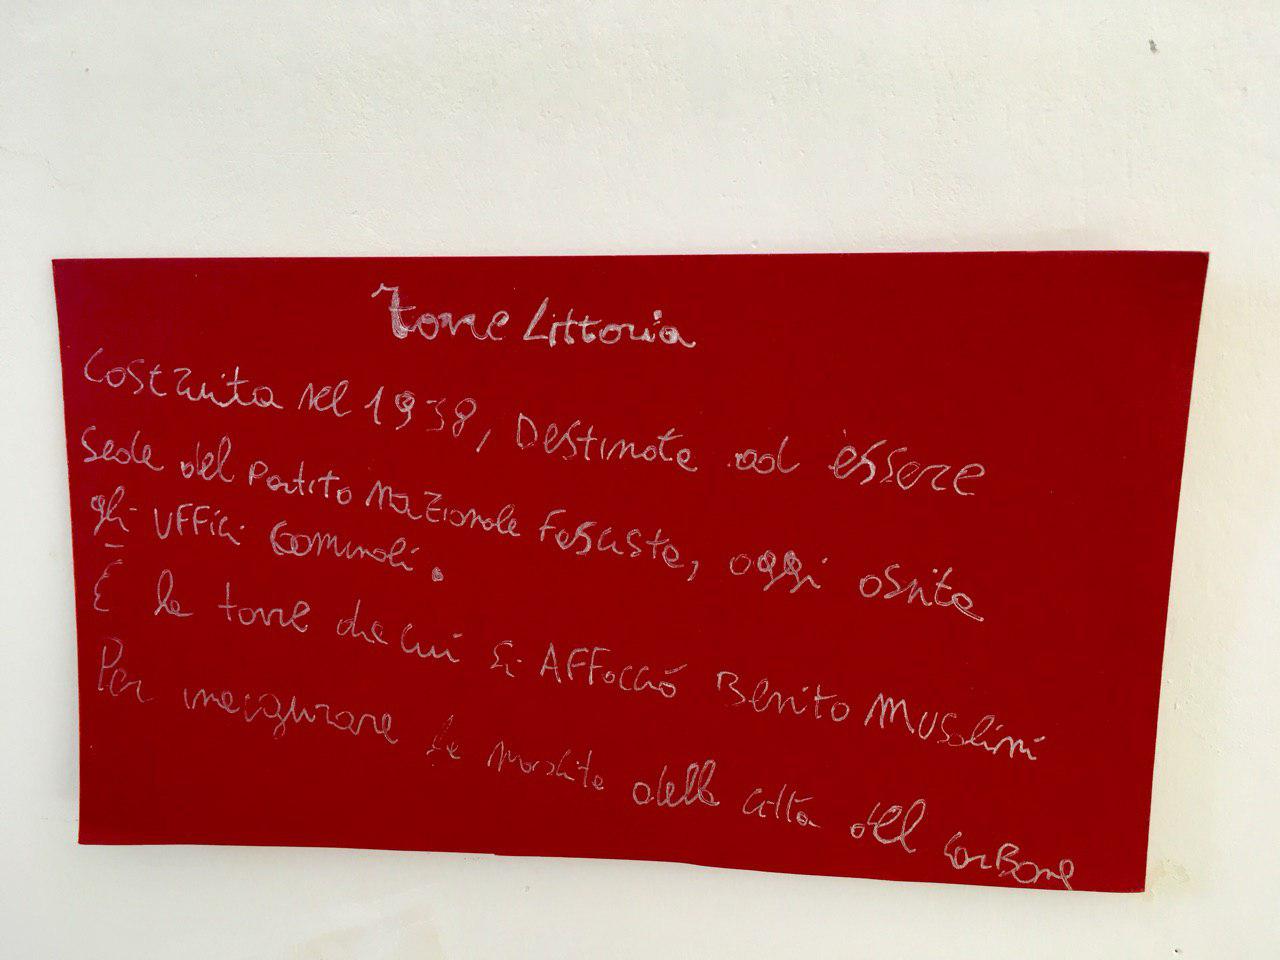 Torre Littoria
Costruita nel 1938, Destinata ad essere
sede del Partito Nazionale Fascista, oggi ospita
gli uffici comunali.
É la torre da cui si AFFacció Benito Musolini
Per inaugurare la nascita della città del carBone